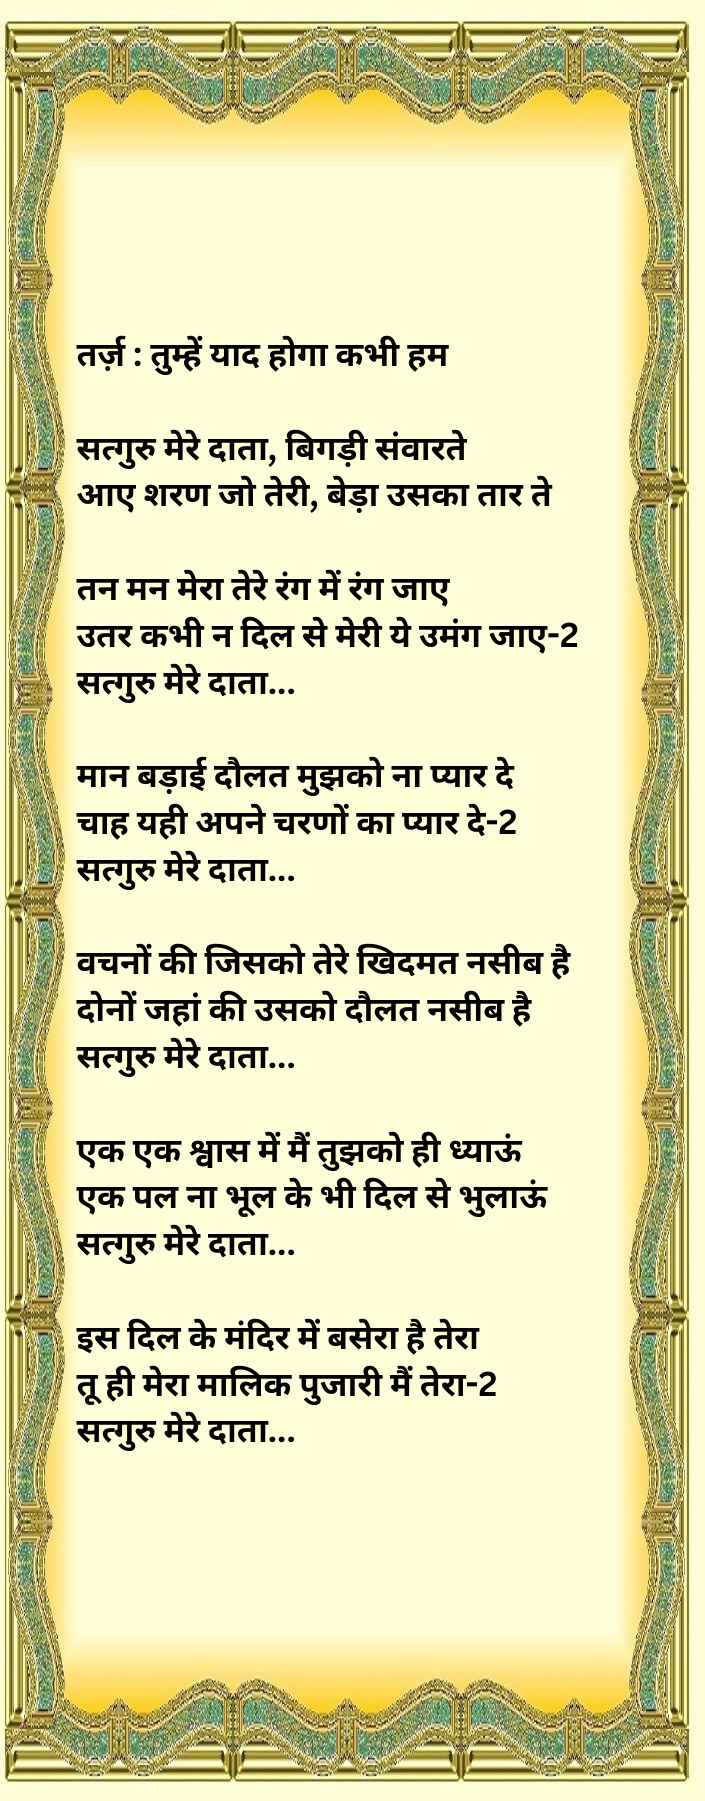 तर्ज़ : तुम्हें याद होगा कभी हम
सत्गुरु मेरे दाता, बिगड़ी संवारते
आए शरण जो तेरी, बेड़ा उसका तार ते
तन मन मेरा तेरे रंग में रंग जाए
उतर कभी न दिल से मेरी ये उमंग जाए-2
सत्गुरु मेरे दाता...
मान बड़ाई दौलत मुझको ना प्यार दे
चाह यही अपने चरणों का प्यार दे-2
सत्गुरु मेरे दाता...
वचनों की जिसको तेरे खिदमत नसीब है
दोनों जहां की उसको दौलत नसीब है
सत्गुरु मेरे दाता...
एक एक श्वास में मैं तुझको ही ध्याऊं
एक पल ना भूल के भी दिल से भुलाऊं
सत्गुरु मेरे दाता...
इस दिल के मंदिर में बसेरा है तेरा
तू ही मेरा मालिक पुजारी मैं तेरा-2
सत्गुरु मेरे दाता...